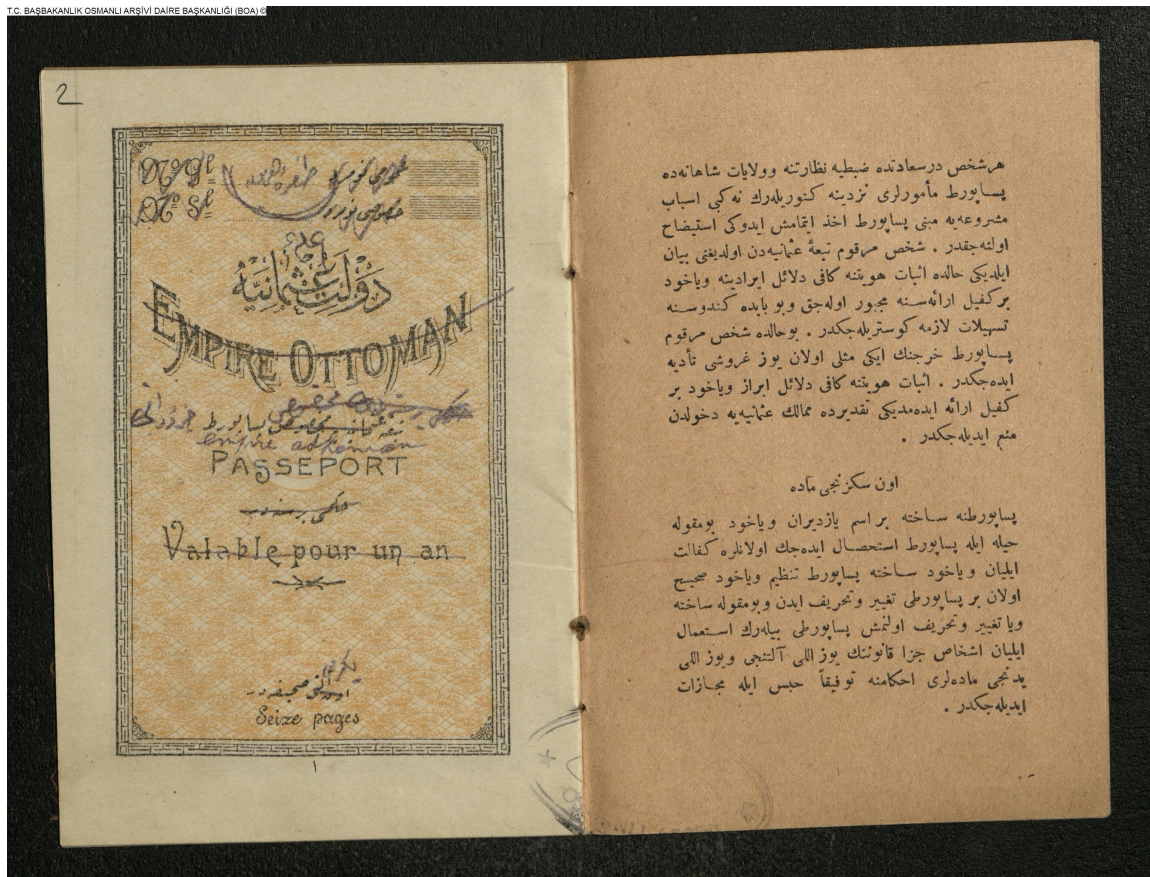 T.C. BAŞBAKANLIK OSMANLI ARŞİVİ DAİRE BAŞKANLIĞI (BOA) ©
2
دولت عليۀ عثمانيه
EMPIRE OTTOMAN
پساپورط
empire ottoman
PASSEPORT
حكمی بر سنه در
Valable pour un an
اون التی صحيفه در
Seize pages
١
هر شخص درسعادتده ضبطيه نظارتنه و ولايات شاهانه‌ده
پساپورط مأمورلری نزدينه كتوريله‌رك نه كبی اسباب
مشروعه‌يه مبنی پساپورط اخذ ايتمامش ايدوكی استيضاح
اولنه‌جقدر . شخص مرقوم تبعۀ عثمانيه‌دن اولديغنی بيان
ايلديكی حالده اثبات هويتنه كافی دلائل ايرادينه وياخود
بر كفيل ارائه‌سنه مجبور اوله‌جق و بو بابده كندوسنه
تسهيلات لازمه كوستريله‌جكدر . بو حالده شخص مرقوم
پساپورط خرجنك ايكی مثلی اولان يوز غروشی تأديه
ايده‌جكدر . اثبات هويتنه كافی دلائل ابراز وياخود بر
كفيل ارائه ايده‌مديكی تقديرده ممالك عثمانيه‌يه دخولدن
منع ايديله‌جكدر .
اون سكزنجی ماده
پساپورطنه ساخته بر اسم يازديران وياخود بومقوله
حيله ايله پساپورط استحصال ايده‌جك اولانلره كفالت
ايليان وياخود ساخته پساپورط تنظيم وياخود صحيح
اولان بر پساپورطی تغيير وتحريف ايدن وبومقوله ساخته
ويا تغيير وتحريف اولنمش پساپورطی بيله‌رك استعمال
ايليان اشخاص جزا قانوننك يوز اللی آلتنجی ويوز اللی
يدنجی ماده‌لری احكامنه توفيقاً حبس ايله مجازات
ايديله‌جكدر .